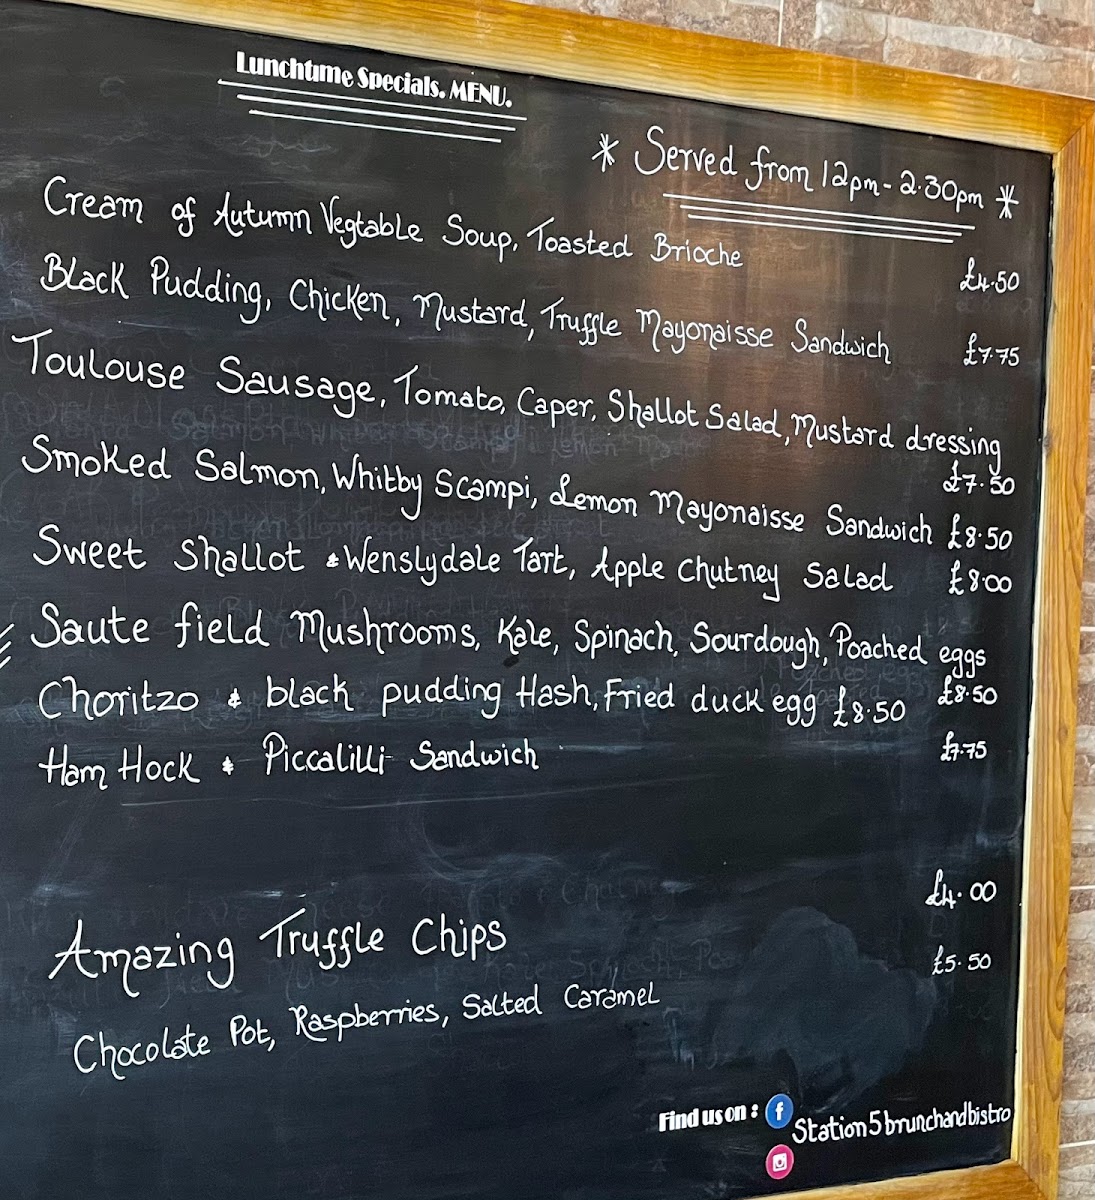 Lunchtime Specials. MENU.
* Served from 12pm - 2.30pm *
Cream of Autumn Vegtable Soup, Toasted Brioche £4.50
Black Pudding, Chicken, Mustard, Truffle Mayonaisse Sandwich £7.75
Toulouse Sausage, Tomato, Caper, Shallot Salad, Mustard dressing
£7.50
Smoked Salmon, Whitby Scampi, Lemon Mayonaisse Sandwich £8.50
Sweet Shallot & Wenslydale Tart, Apple Chutney Salad £8.00
Saute field Mushrooms, Kale, Spinach, Sourdough, Poached eggs
£8.50
Choritzo & black pudding Hash, Fried duck egg £8.50
Ham Hock & Piccalilli Sandwich £7.75
Amazing Truffle Chips £4.00
Chocolate Pot, Raspberries, Salted Caramel £5.50
Find us on : f Station5brunchandbistro